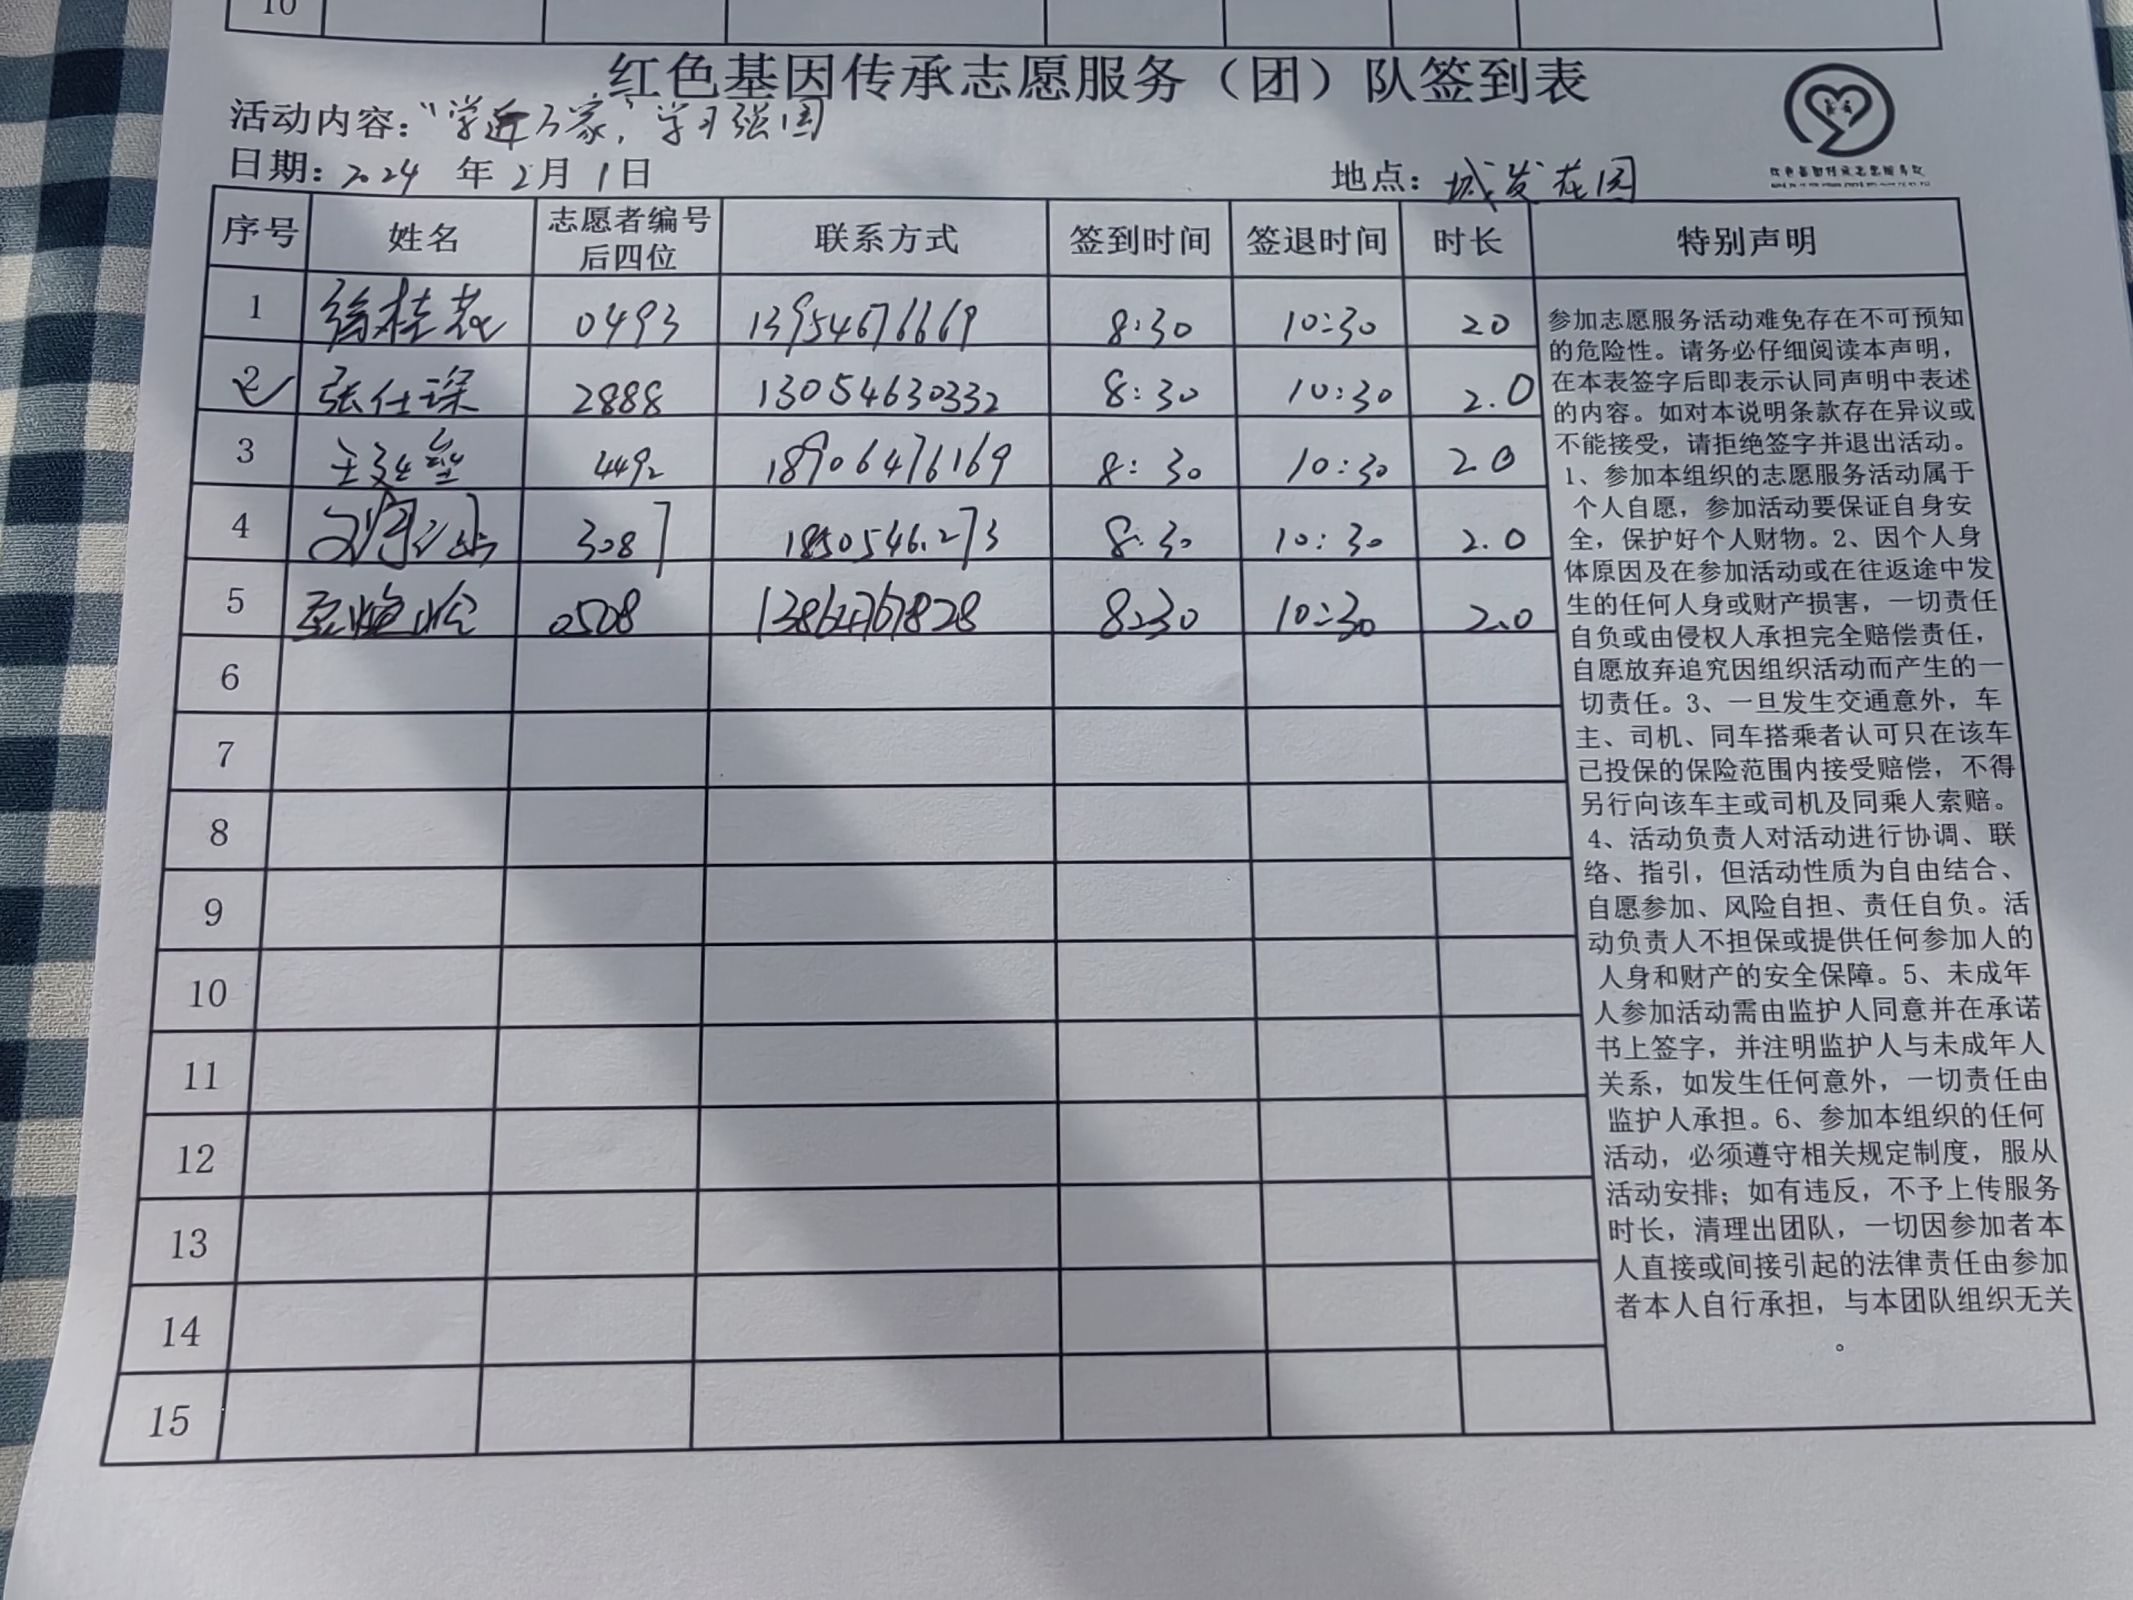 10
红色基因传承志愿服务（团）队签到表
活动内容：“学进万家，”学习强国
日期：2024 年 2月 1日 地点：城发花园
序号 姓名 志愿者编号后四位 联系方式 签到时间 签退时间 时长 特别声明
1 徐桂花 0493 13954676669 8:30 10:30 20
2 张仕琛 2888 13054630332 8:30 10:30 2.0
3 4492 18906476169 8:30 10:30 20
4 3087 8:30 10:30 2.0
5 0508 8:30 10:30 2.0
6
7
8
9
10
11
12
13
14
15
参加志愿服务活动难免存在不可预知
的危险性。请务必仔细阅读本声明，
在本表签字后即表示认同声明中表述
的内容。如对本说明条款存在异议或
不能接受，请拒绝签字并退出活动。
1、参加本组织的志愿服务活动属于
个人自愿，参加活动要保证自身安
全，保护好个人财物。2、因个人身
体原因及在参加活动或在往返途中发
生的任何人身或财产损害，一切责任
自负或由侵权人承担完全赔偿责任，
自愿放弃追究因组织活动而产生的一
切责任。3、一旦发生交通意外，车
主、司机、同车搭乘者认可只在该车
已投保的保险范围内接受赔偿，不得
另行向该车主或司机及同乘人索赔。
4、活动负责人对活动进行协调、联
络、指引，但活动性质为自由结合、
自愿参加、风险自担、责任自负。活
动负责人不担保或提供任何参加人的
人身和财产的安全保障。5、未成年
人参加活动需由监护人同意并在承诺
书上签字，并注明监护人与未成年人
关系，如发生任何意外，一切责任由
监护人承担。6、参加本组织的任何
活动，必须遵守相关规定制度，服从
活动安排；如有违反，不予上传服务
时长，清理出团队，一切因参加者本
人直接或间接引起的法律责任由参加
者本人自行承担，与本团队组织无关
。